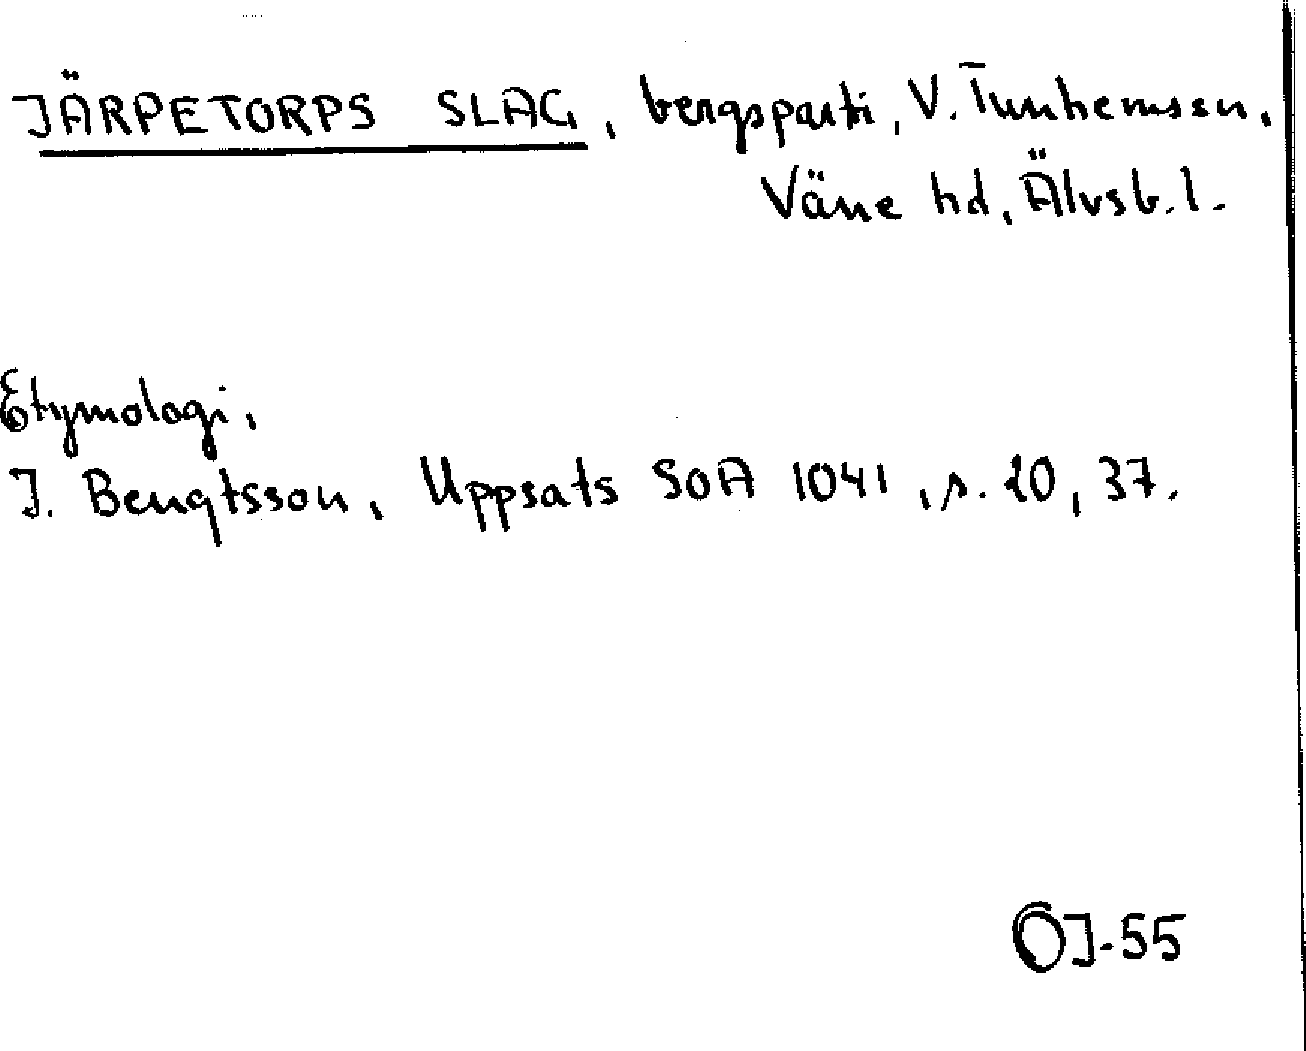 JÄRPETORPS SLAG, bergsparti, V. Tunhemssn,
Väne hd, Älvsb. l.
Etymologi,
J. Bengtsson, Uppsats SOA 1041, s. 20, 37.
OJ-55